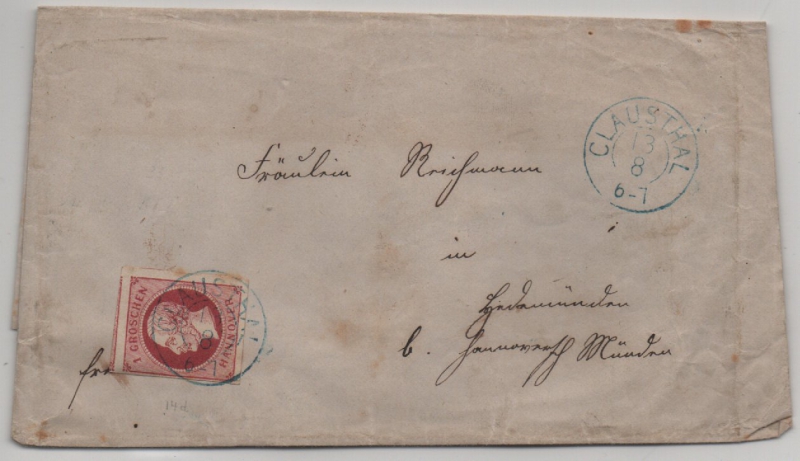 CLAUSTHAL
13
8
6-7
Fräulein Reichmann
in
Hedemünden
b. Hannoversch Münden
1 GROSCHEN
HANNOVER
8
6-7
fr
14d